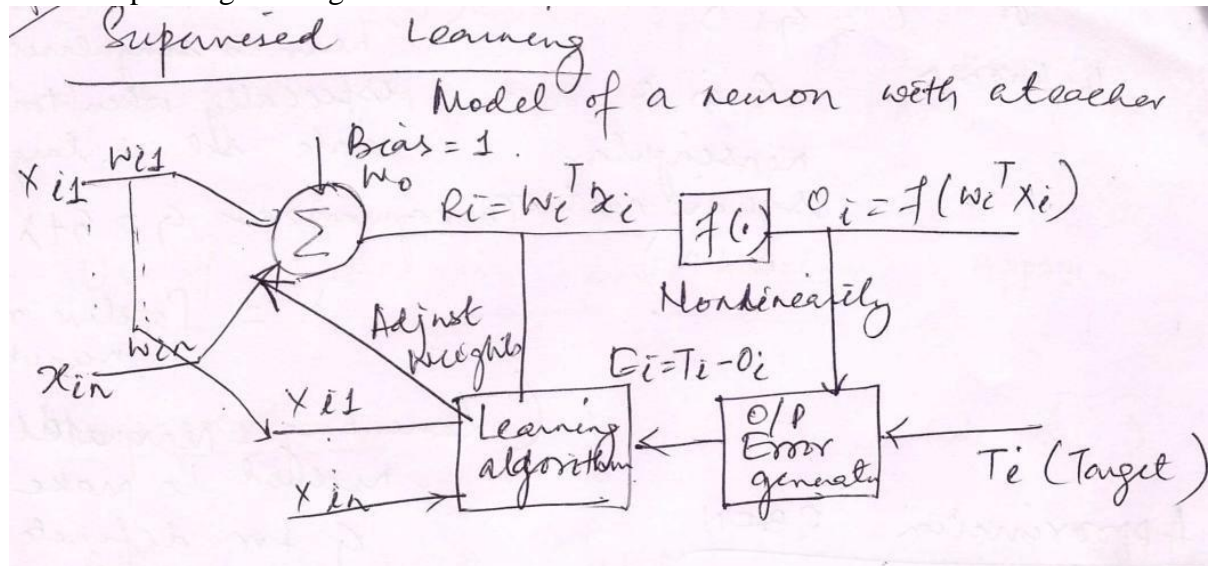 Supervised Learning
Model of a neuron with a teacher
Bias = 1.
Wi1
Xi1
W0
Σ
Ri = Wi^T xi
f(.)
Oi = f(Wi^T Xi)
Nonlinearity
Win
xin
Adjust
Weights
Ei = Ti - Oi
Xi1
Learning
algorithm
O/P
Error
Ti (Target)
Xin